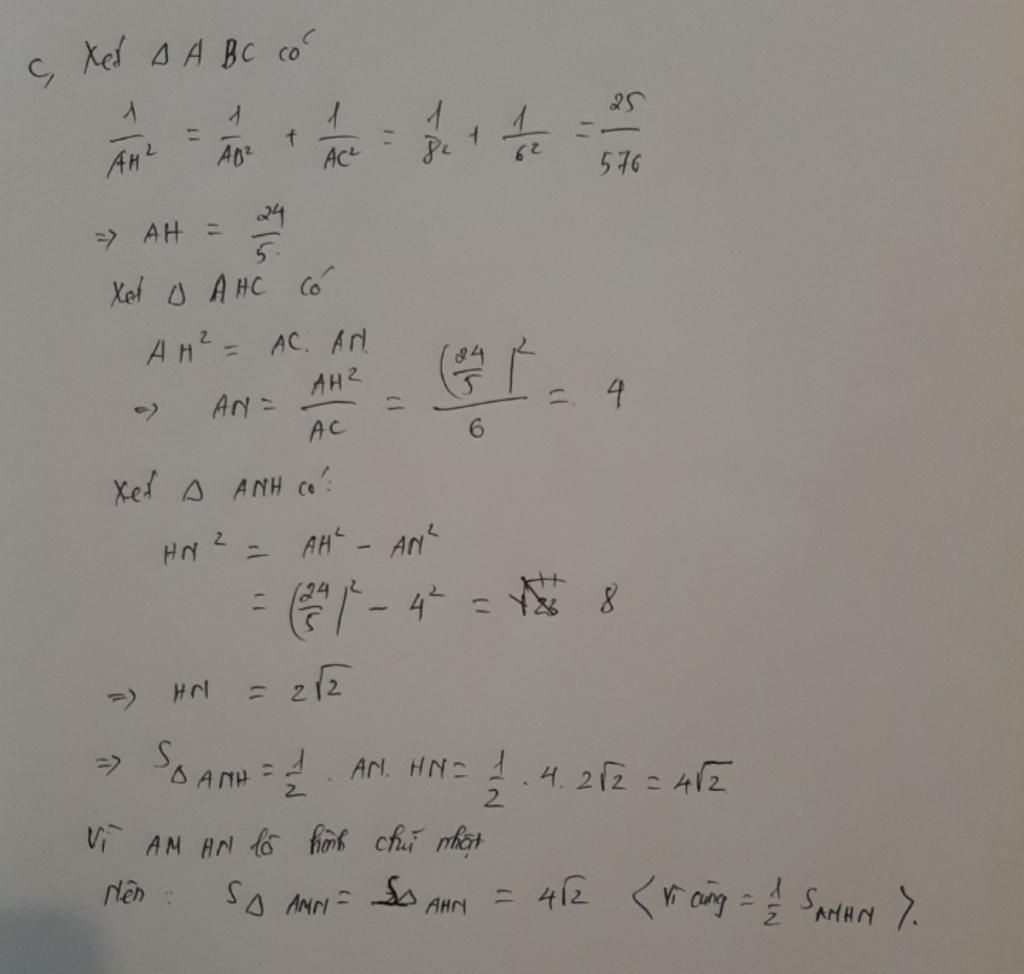 c, Xét Δ ABC có
1/AH² = 1/AB² + 1/AC² = 1/8² + 1/6² = 25/576
=> AH = 24/5
Xét Δ AHC có
AH² = AC. AN.
=> AN = AH²/AC = (24/5)²/6 = 4
Xét Δ ANH có:
HN² = AH² - AN²
= (24/5)² - 4² = 8
=> HN = 2√2
=> SΔ ANH = 1/2 . AN. HN = 1/2 . 4. 2√2 = 4√2
Vì AM HN là hình chữ nhật
Nên : SΔ AMN = SΔ AHN = 4√2 (Vì cùng = 1/2 SAMHN).